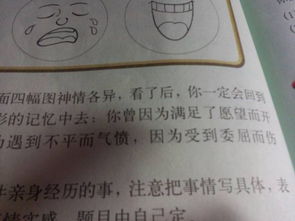 面四幅图神情各异，看了后，你一定会回到
形的记忆中去：你曾因为满足了愿望而开
遇到不平而气愤，因为受到委屈而伤
件亲身经历的事，注意把事情写具体，表
情实感。题目由自己定。